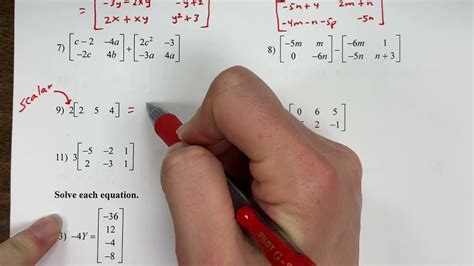 -3y - 2xy    -y + 2
2x + xy    y² + 3
-5n + 4    2m + n
-4m - n - 5p    -5n
7) [c - 2  -4a / -2c  4b] + [2c²  -3 / -3a  4a]
8) [-5m  m / 0  -6n] - [-6m  1 / -5n  n + 3]
scalar
9) 2[2  5  4] =
0  6  5
2  -1
11) 3[-5  -2  1 / 2  -3  1]
Solve each equation.
3) -4Y = [-36 / 12 / -4 / -8]
PILOT G-2